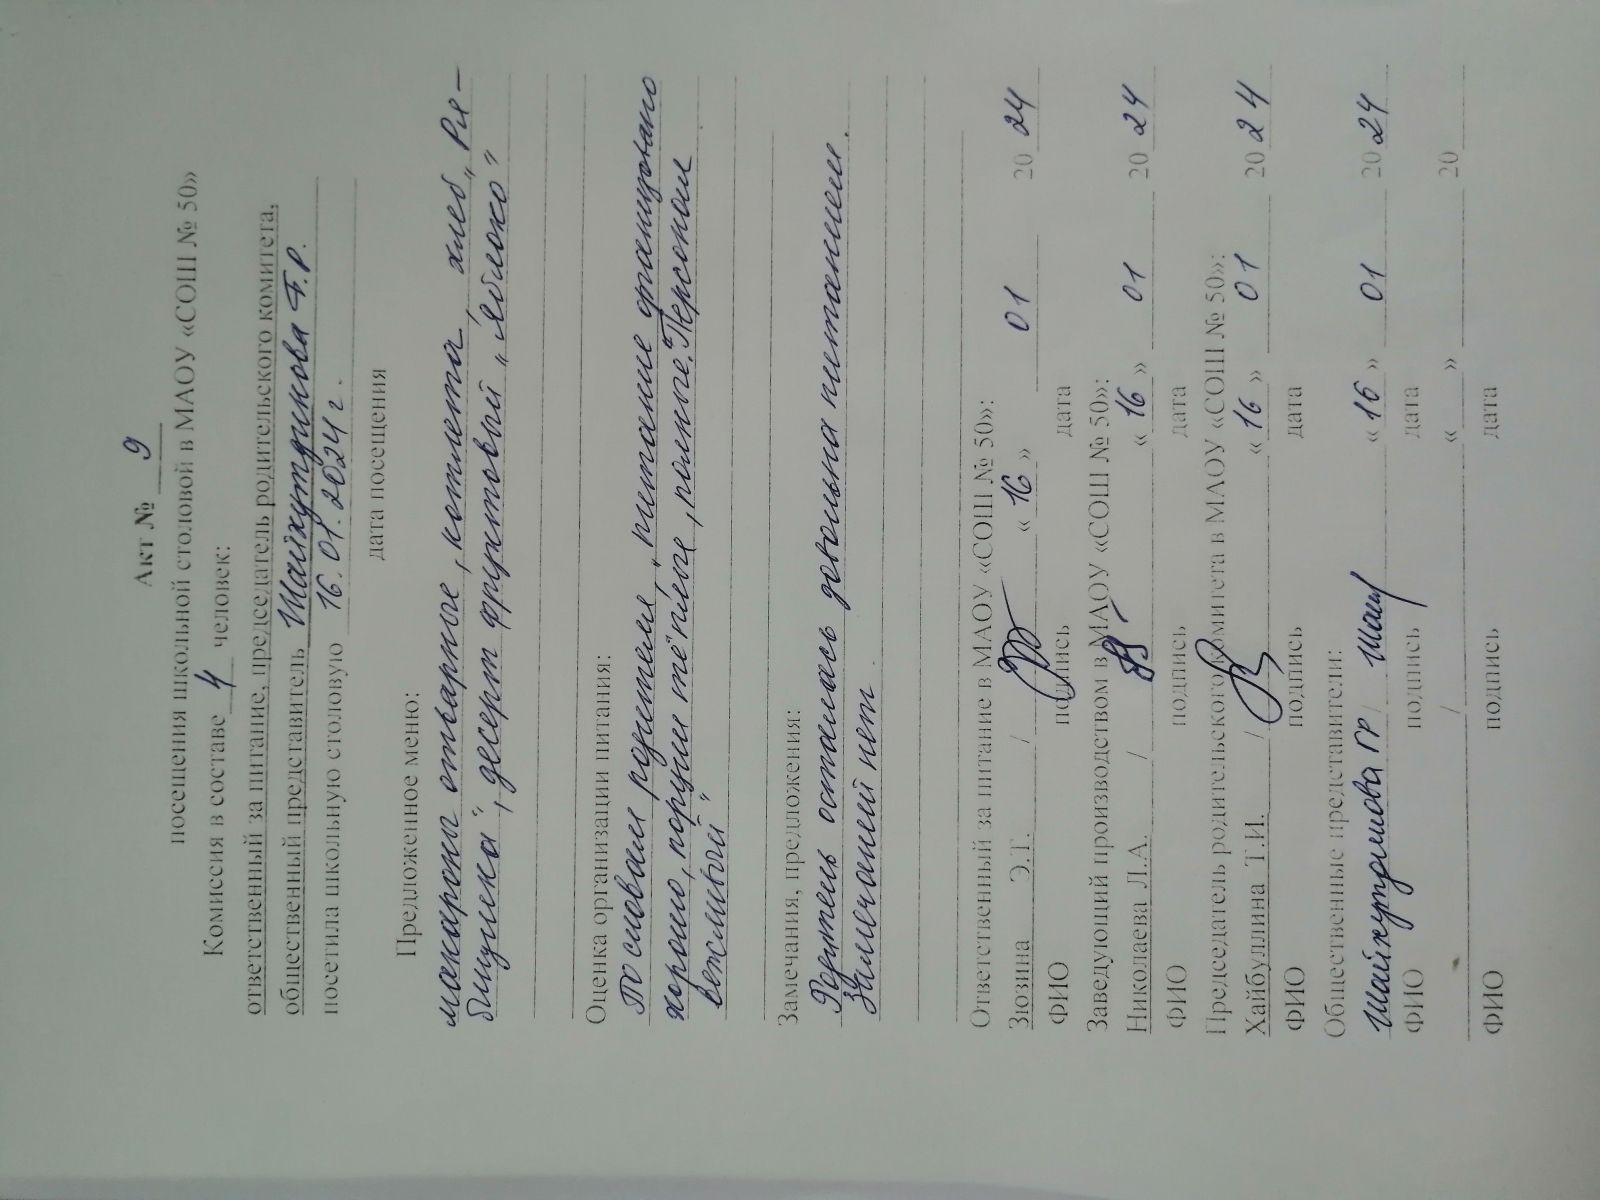 Акт № 9
посещения школьной столовой в МАОУ «СОШ № 50»
Комиссия в составе 4 человек:
ответственный за питание, председатель родительского комитета,
общественный представитель Шайхутдинова Г.Р.
посетила школьную столовую 16.01.2024 г.
дата посещения
Предложенное меню:
макароны отварные, котлета, хлеб „Ря-
бинушка", десерт фруктовый „Яблоко"
Оценка организации питания:
По словам родителя, „питание организовано
хорошо, порции тёплые, полные. Персонал
вежливый"
Замечания, предложения:
Родитель осталась довольна питанием.
Замечаний нет.
Ответственный за питание в МАОУ «СОШ № 50»:
Зюзина Э.Т. / « 16 » 01 20 24
ФИО подпись дата
Заведующий производством в МАОУ «СОШ № 50»:
Николаева Л.А. / « 16 » 01 20 24
ФИО подпись дата
Председатель родительского комитета в МАОУ «СОШ № 50»:
Хайбуллина Т.И. / « 16 » 01 20 24
ФИО подпись дата
Общественные представители:
Шайхутдинова ГР / Шайх « 16 » 01 20 24
ФИО подпись дата
/ « » 20
ФИО подпись дата